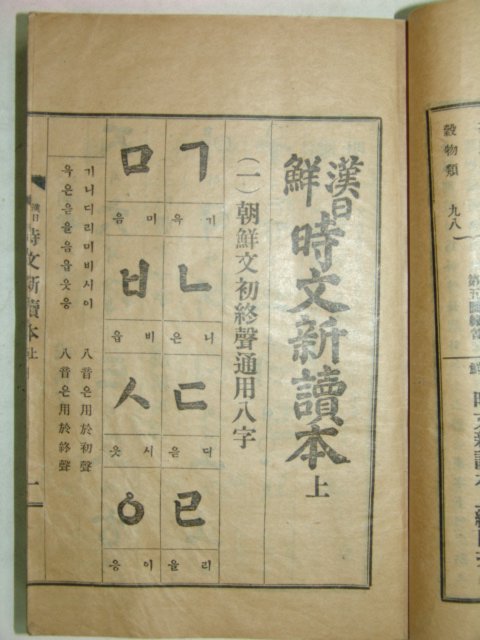 漢日鮮時文新讀本 上
(一) 朝鮮文初終聲通用八字
ㄱ
기 윽
ㄴ
니 은
ㄷ
디 읃
ㄹ
리 을
ㅁ
미 음
ㅂ
비 읍
ㅅ
시 읏
ㅇ
이 응
기니디리미비시이 八音은用於初聲
윽은읃을음읍읏응 八音은用於終聲
時文新讀本 上
一
穀物類 九八